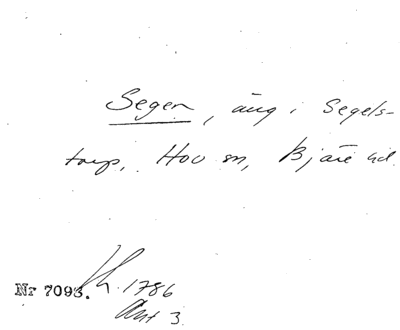 Segen, äng i Segels-
torp, Hov sn, Bjäre hd.
Nr 7093. Lh. 1786
Akt 3